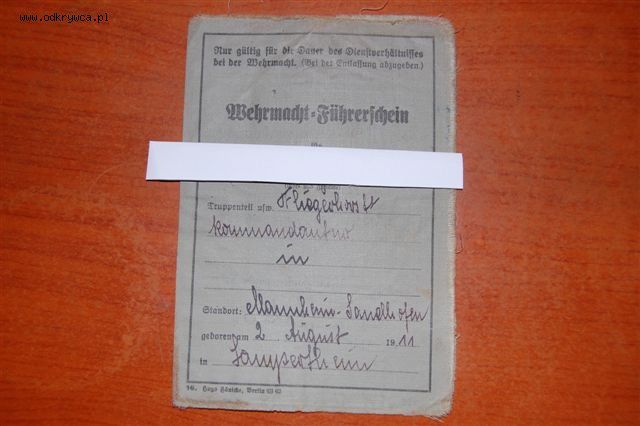 www.odkrywca.pl
Nur gültig für die Dauer des Dienstverhältnisses
bei der Wehrmacht. (Bei der Entlassung abzugeben.)
Wehrmacht-Führerschein
Truppenteil usw. Fliegerhorst
kommandantur
in
Standort: Mannheim-Sandhofen
geboren am 2 August 1911
in Lampertheim
Berlin